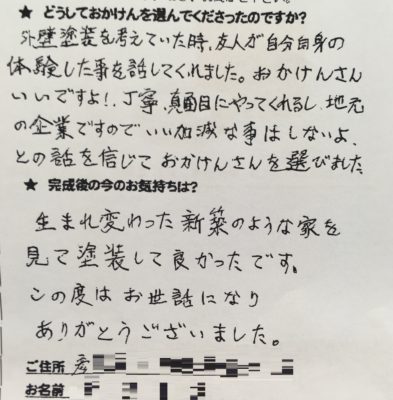 ★ どうしておかけんを選んでくださったのですか?
外壁塗装を考えていた時、友人が自分自身の
体験した事を話してくれました。おかけんさん
いいですよ!、丁寧、真面目にやってくれるし、地元
の企業ですのでいい加減な事はしないよ、
との話を信じておかけんさんを選びました
★ 完成後の今のお気持ちは?
生まれ変わった新築のような家を
見て塗装して良かったです。
この度はお世話になり
ありがとうございました。
ご住所
お名前